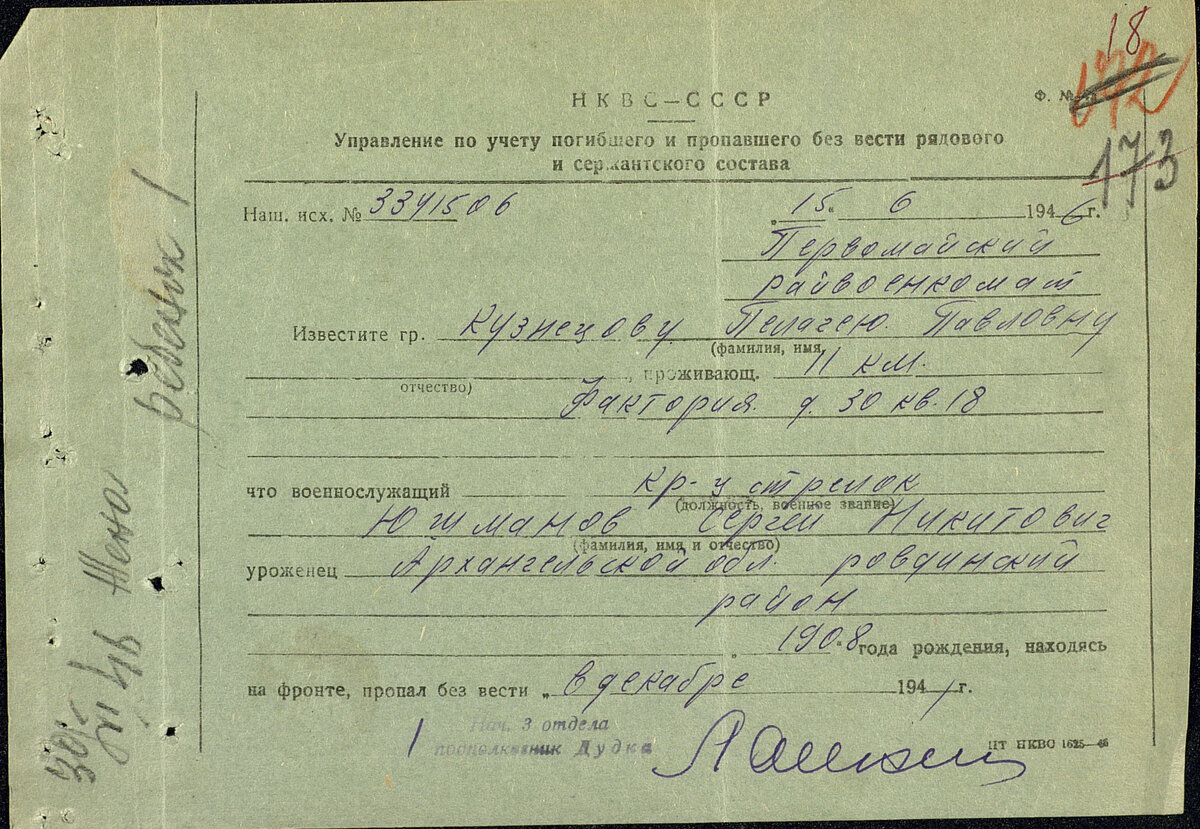 18
173
НКВС—СССР
Ф. №
Управление по учету погибшего и пропавшего без вести рядового
и сержантского состава
Наш. исх. № 3341506 „15" 6 1946г.
Первомайский
райвоенкомат
Известите гр. Кузнецову Пелагею Павловну
(фамилия, имя,
отчество) , проживающ. 11 км.
Фактория д. 30 кв. 18
что военнослужащий кр-ц стрелок
(должность, военное звание)
Югиманов Сергей Никитович
(фамилия, имя и отчество)
уроженец Архангельской обл. ровдинский
район
1908 года рождения, находясь
на фронте, пропал без вести „ в декабре 1941г.
Нач. 3 отдела
подполковник Дудка
ЦТ НКВО 1625—46
Жена
ребенок 1